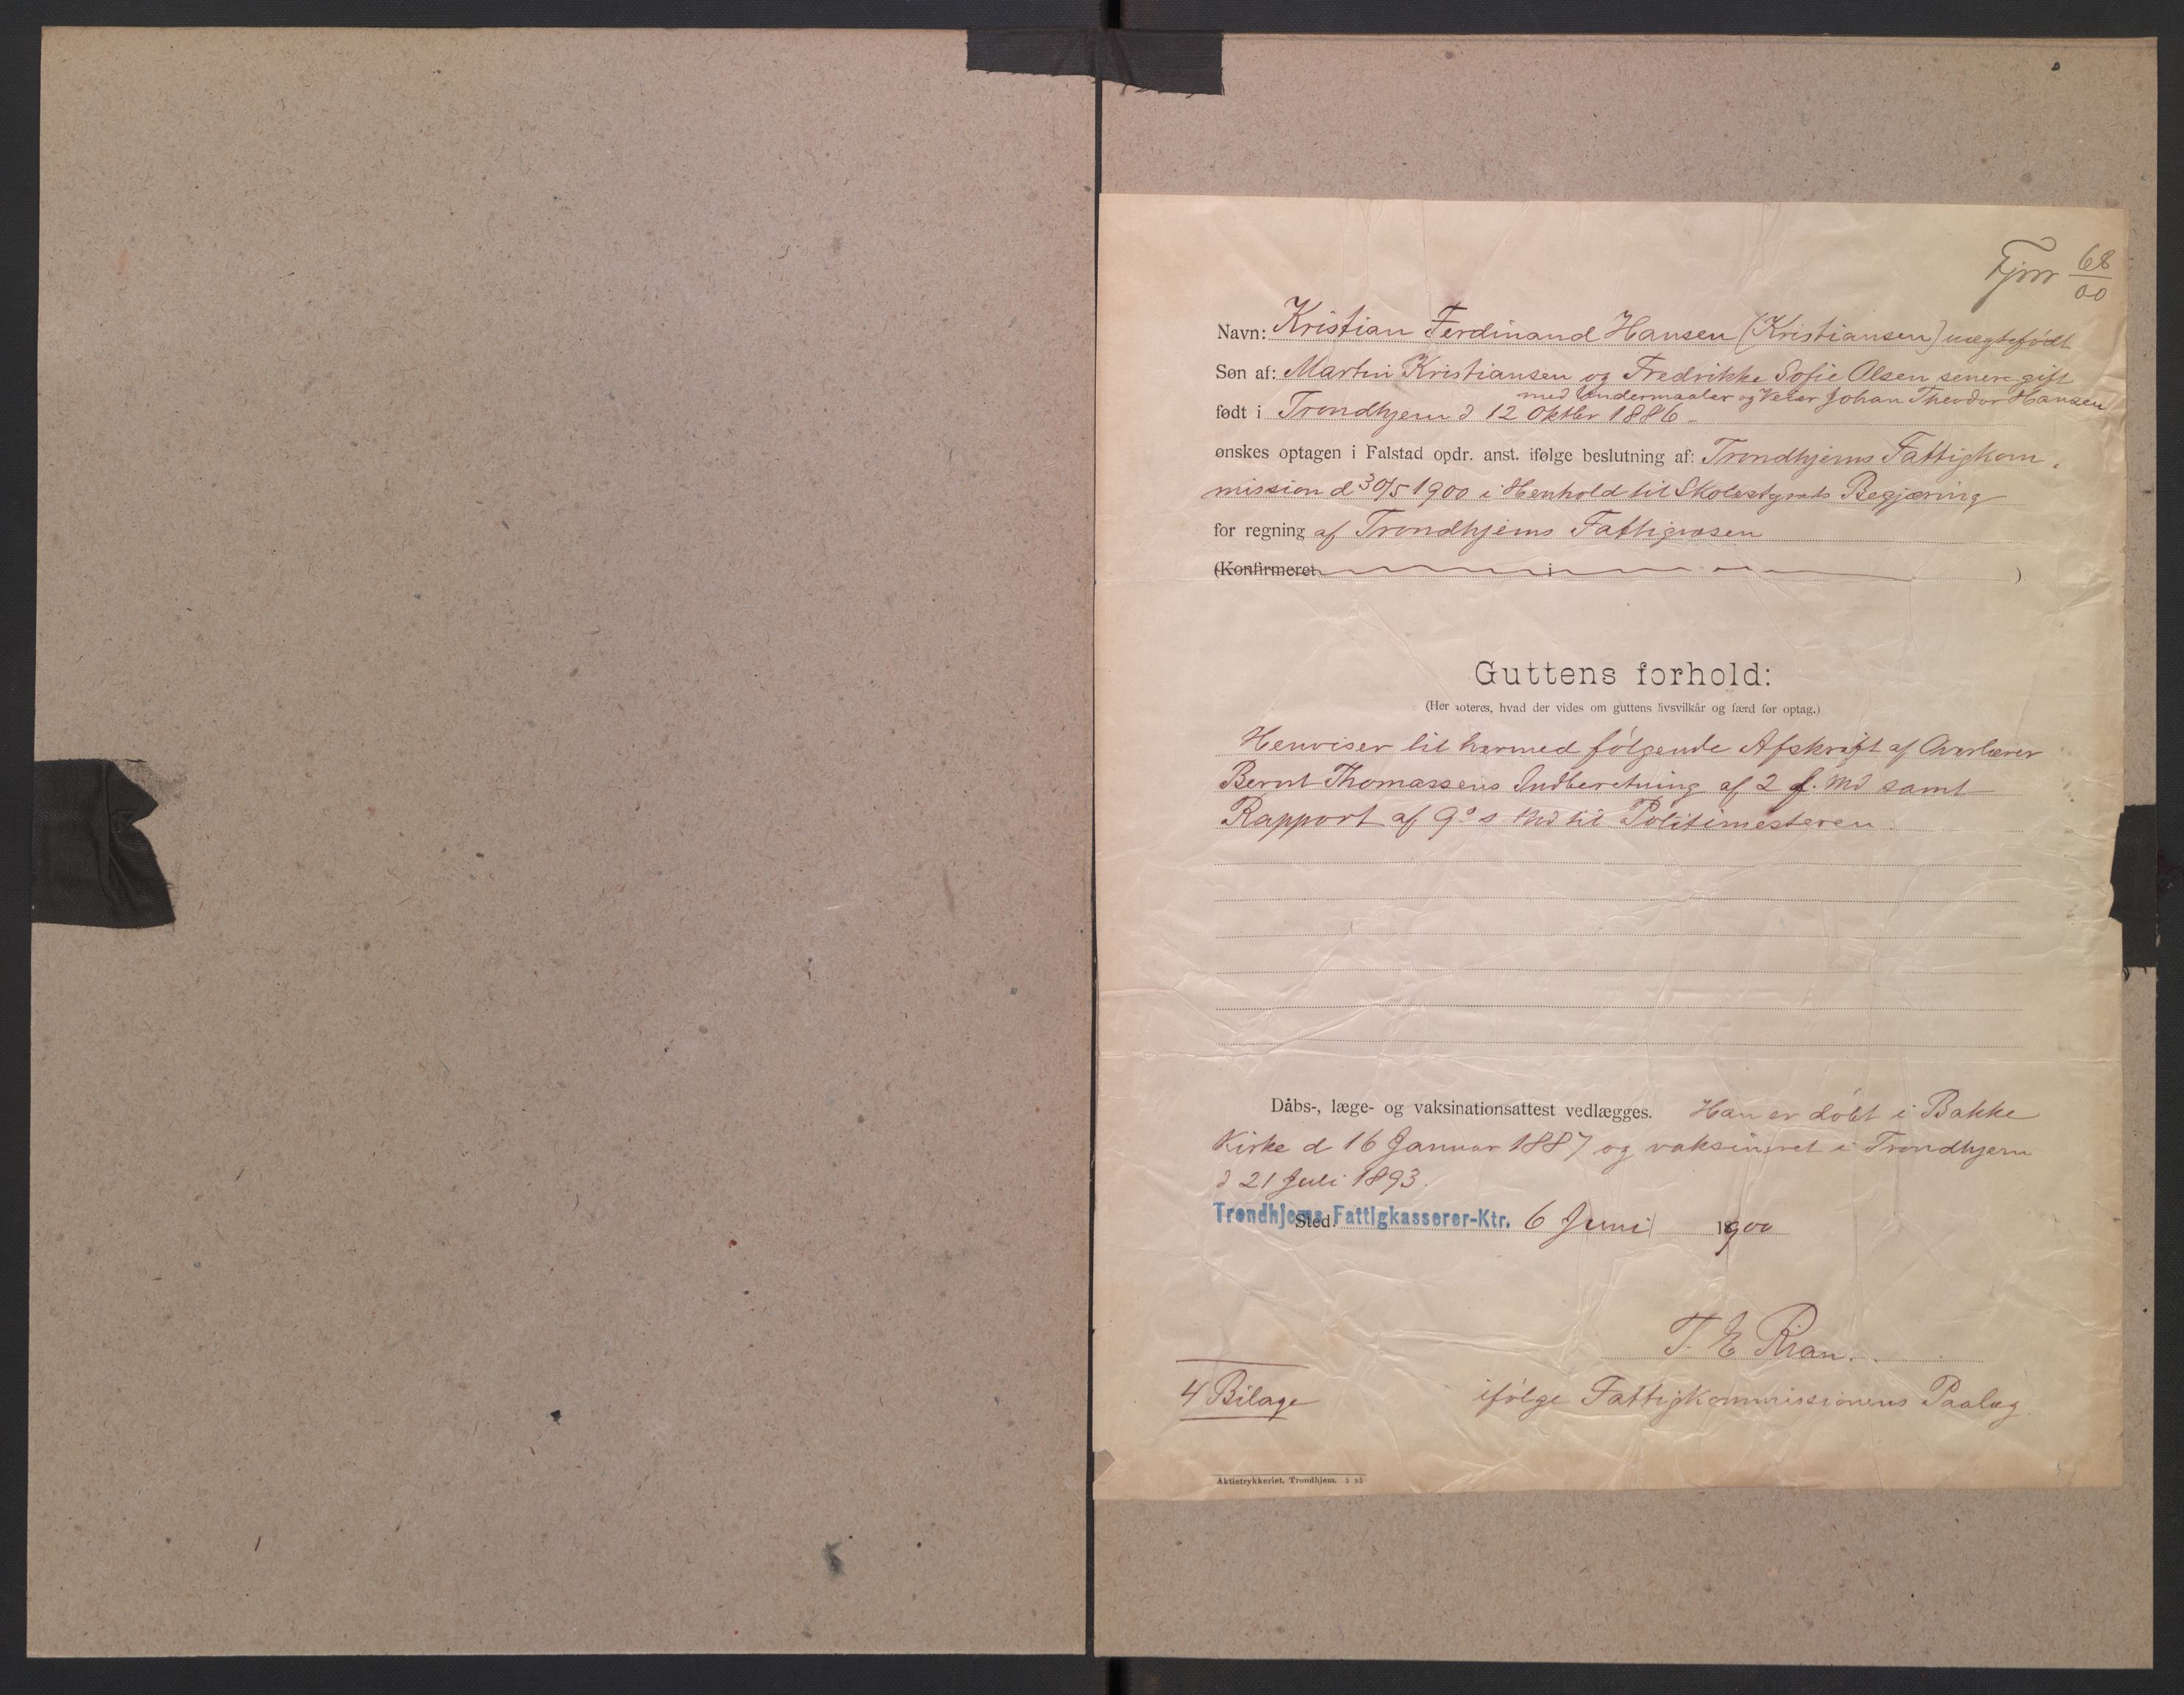 68
00
Navn: Kristian Ferdinand Hansen (Kristiansen) uægtefødt
Søn af: Martin Kristiansen og Fredrikke Sofie Olsen senere gift
med Undermaaler og Veier Johan Theodor Hansen
født i Trondhjem d 12 Oktbr 1886 -
ønskes optagen i Falstad opdr. anst. ifølge beslutning af: Trondhjems Fattigkom-
mission d 30/5 1900 i Henhold til Skolestyrets Begjæring
for regning af Trondhjems Fattigvæsen
(Konfirmeret i )
Guttens forhold:
(Her noteres, hvad der vides om guttens livsvilkår og færd før optag.)
Henviser til hermed følgende Afskrift af Overlærer
Bernt Thomassens Indberetning af 2 f. Md samt
Rapport af 9de s Md til Politimesteren.
Dåbs-, læge- og vaksinationsattest vedlægges. Han er døbt i Bakke
Kirke d 16 Januar 1887 og vaksineret i Trondhjem
d 21 Juli 1893.
Trondhjems Fattigkasserer-Ktr.
Sted. 6 Juni 1900
T. E. Rian.
4 Bilage
ifølge Fattigkommissionens Paalæg
Aktietrykkeriet, Trondhjem. 5 95